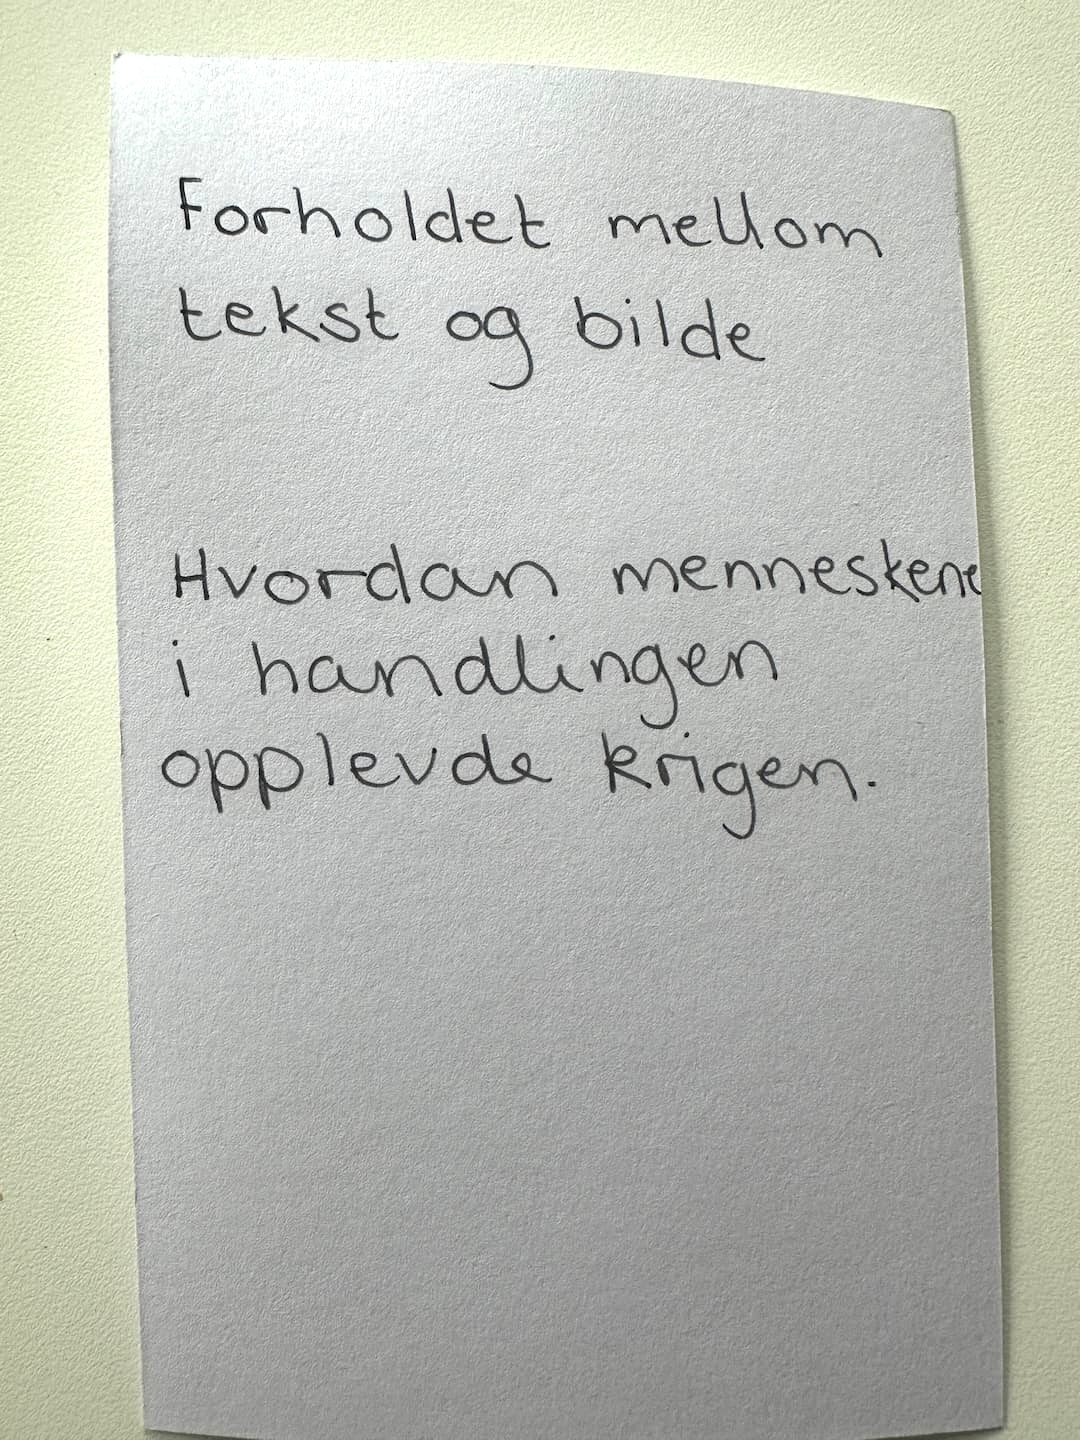 Forholdet mellom
tekst og bilde
Hvordan menneskene
i handlingen
opplevde krigen.